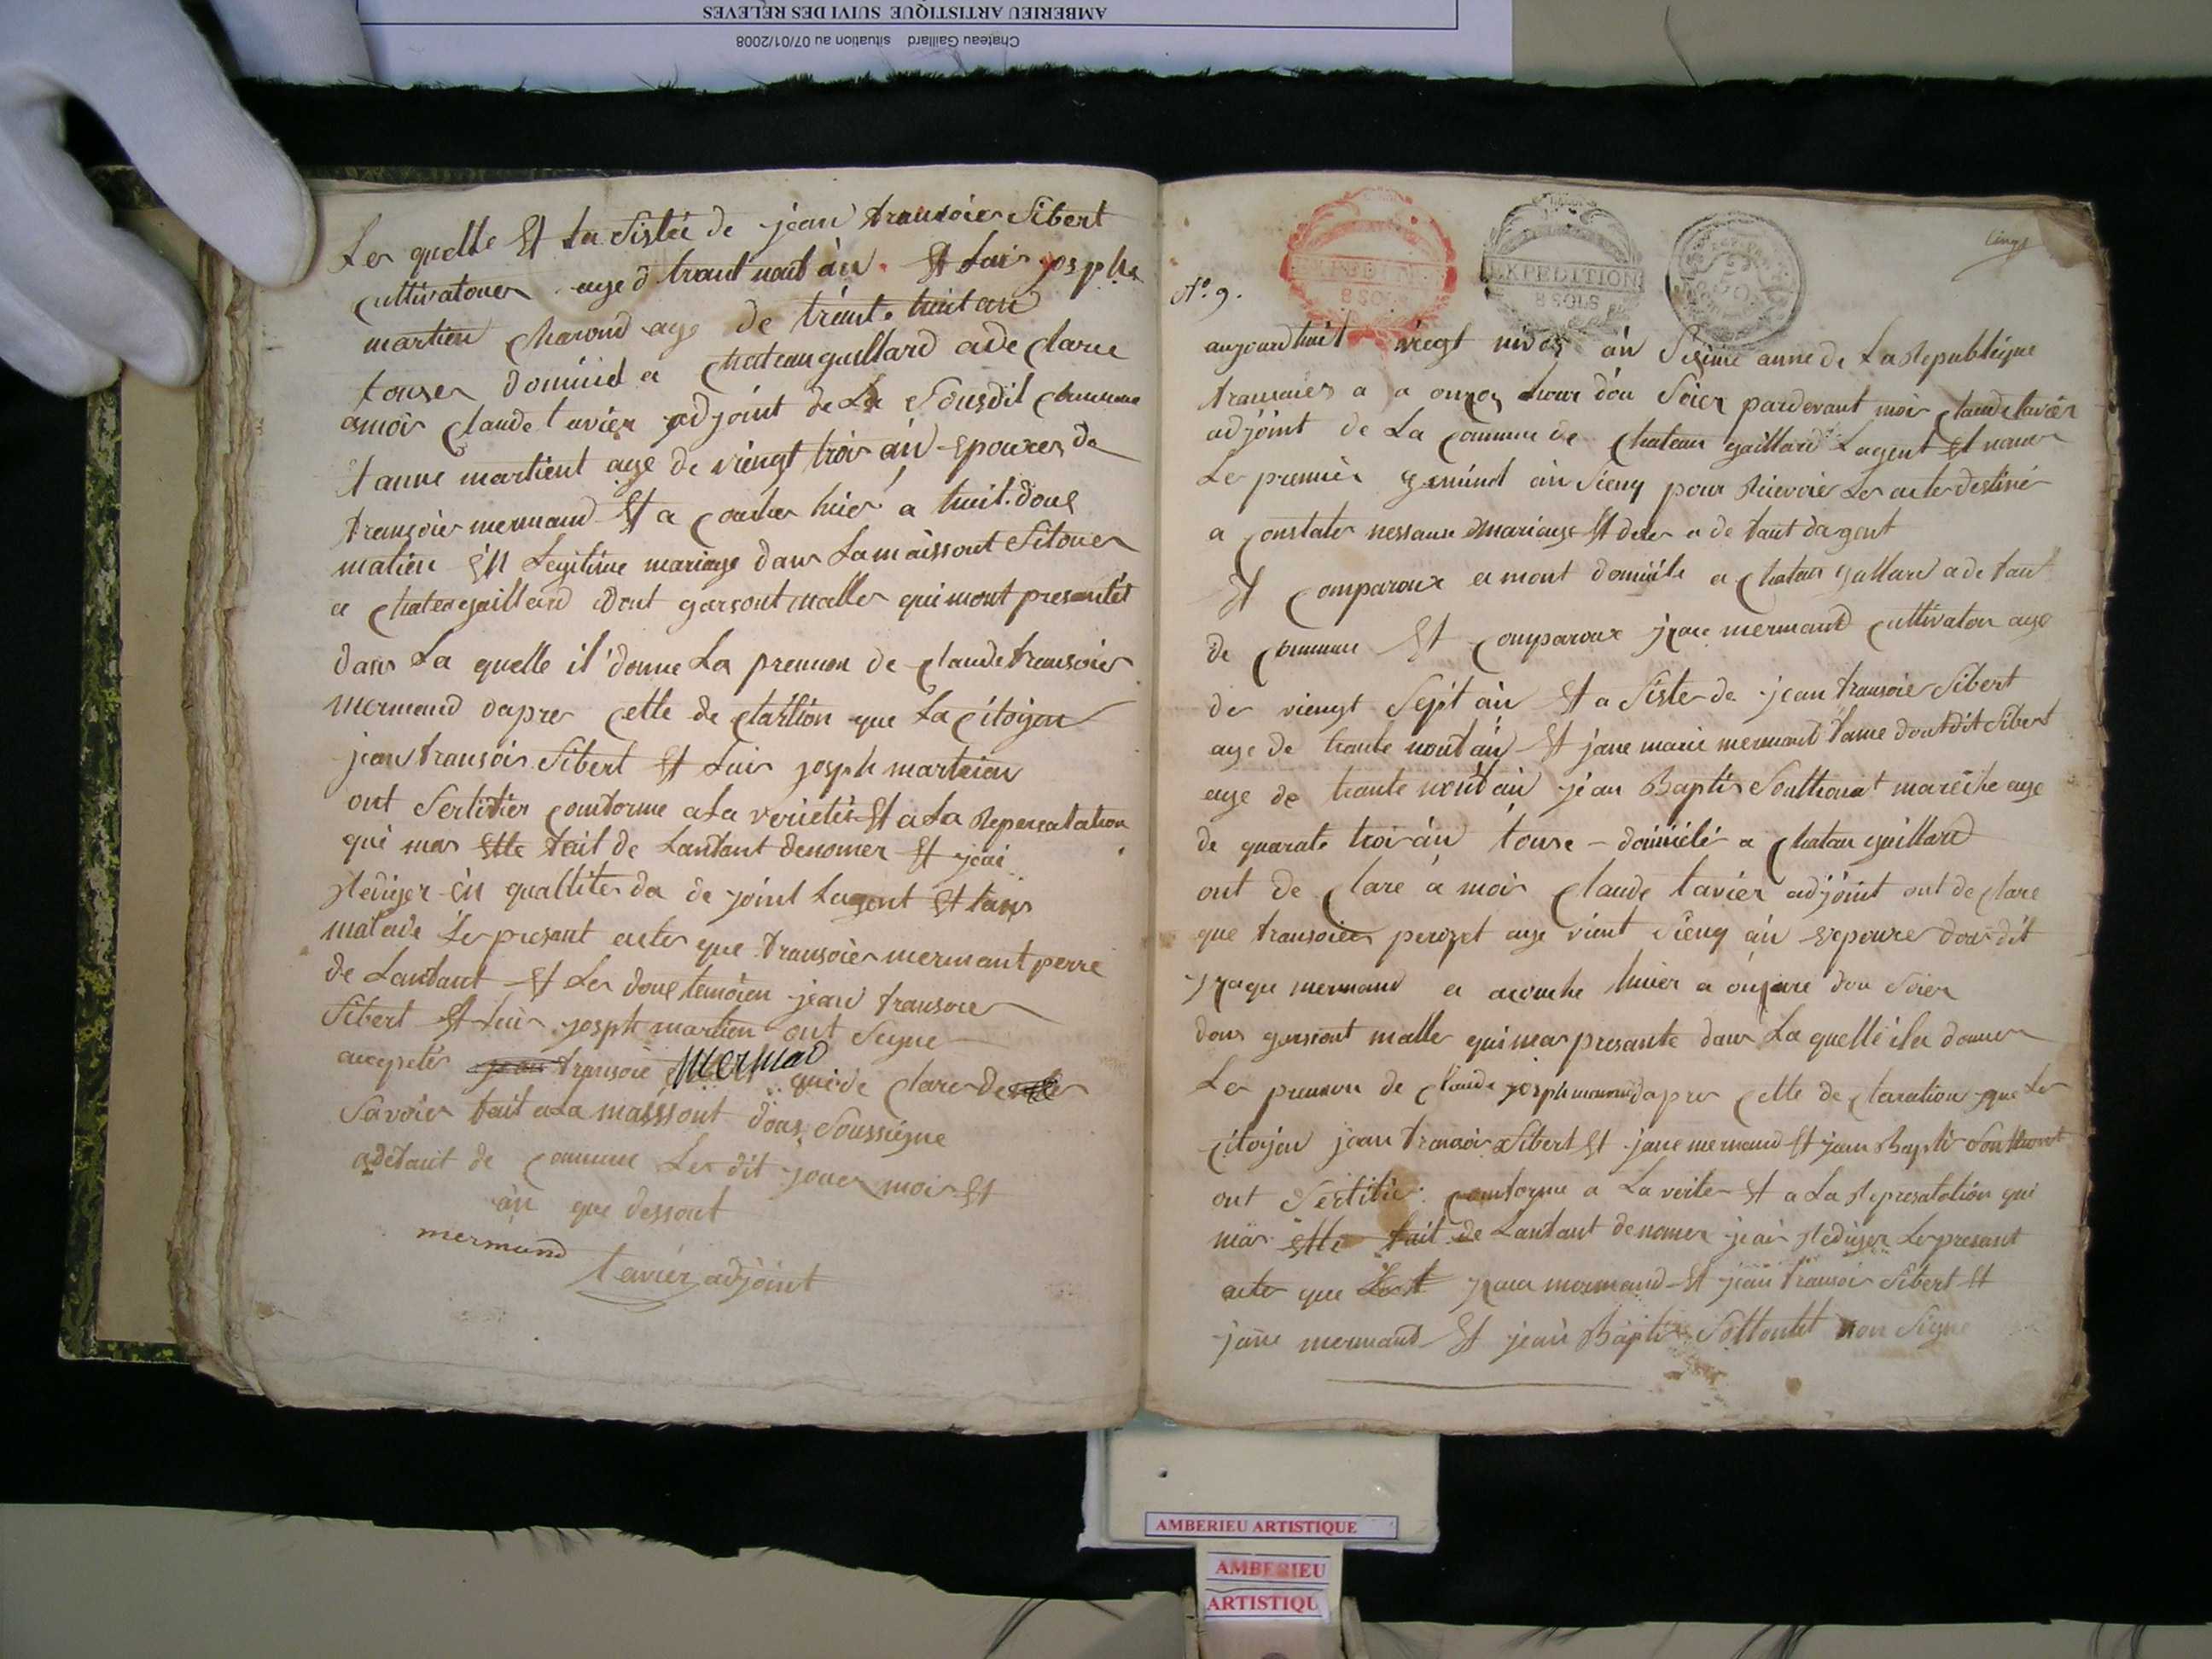 AMBERIEU ARTISTIQUE SUIVI DES RELEVES
Chateau Gaillard situation au 07/01/2008
Les quelle Et la Sistée de jean transoies Sibert
Cultivatouer age d trant nout àn. Et Luis josphe
martien Charond age de trente huit an
touser domicil a Chateauguillard a de clarer
amoir Claude tavier adjoint de La Sousdit Commune
t anne martient age de viengt trois àn epouzes de
transoies mermand Et a coucher hier a huit doue
matien én Legitime mariage dans La maissont Sitouer
a Chateaugaillard dont garsont malle qui mont presentét
dans La quelle il donne La prenuon de Claude transoies
mermand dapres Cette de clartion que La Citoyen
jean transois Sibert Et Luis josph martien
ont Sertifier conforme a La verietés Et a La Representation
qui mas Ette fait de Lanfant denomer Et jeai
Rediger én quallites da de joint Lagent Et tans
malade Les presant actes que transoies mermant perre
de Lanfant Et Les doue temoien jean transoies
Sibert Et Luis josph martien ont Segne
acceptés transoié Mermad qui de clarer de
Savoier fait a La maissont doas Soussigne
adetant de Commune Les dit jouer mois Et
àn que dessout
mermand
tavier adjoint
Cinq
EXPEDITION
8 SOLS
EXPEDITION
8 SOLS
No. 9.
aujourdhuit viengt nivos àn Sisime anne de La Republique
transaies a a onzes heur dou Soier pardevant moir Claude tavier
adjoint de La Commune de Chateau gaillard Lagent Et nomer
Le premier germinal àn Sienq pour Recevoir Les actes destiné
a Constater nessance mariage Et deces a de faut dagent
Et Comparoux a mont domicile a Chatau gallard a de faut
de Commune Et Comparoux jaque mermand Cultivatou age
de viengt Sept àn Et a Sister de jean transoie Sibert
age de trante nout àn Et jane marie mermand fame dout dit Sibert
age de trante nout àn jean Baptis Souttonat maréche age
de quarate troi àn touse - domiciler a Chatau gaillard
ont de clare a moir Claude tavier adjoint ont de clare
que transoies perozet age vient Sienq àn epouze dou dit
jaque mermand a acouche huier a onzeure dou Soier
dous garsont malle qui mas presante dans La quelle il a donner
Les prenuon de Claude josph mermand dapres Cette de claration que Les
Citoyen jean transois Sibert Et jane mermand Et jean Baptis Souttonat
ont Sertifie conforme a La verite Et a La Represatation qui
mas Ette fait de Lanfant denomer jeai Rediger Le presant
actes que jaque mermand Et jean transois Sibert Et
jane mermand Et jean Baptis Sottontet non Signe
AMBERIEU ARTISTIQUE
AMBERIEU
ARTISTIQU